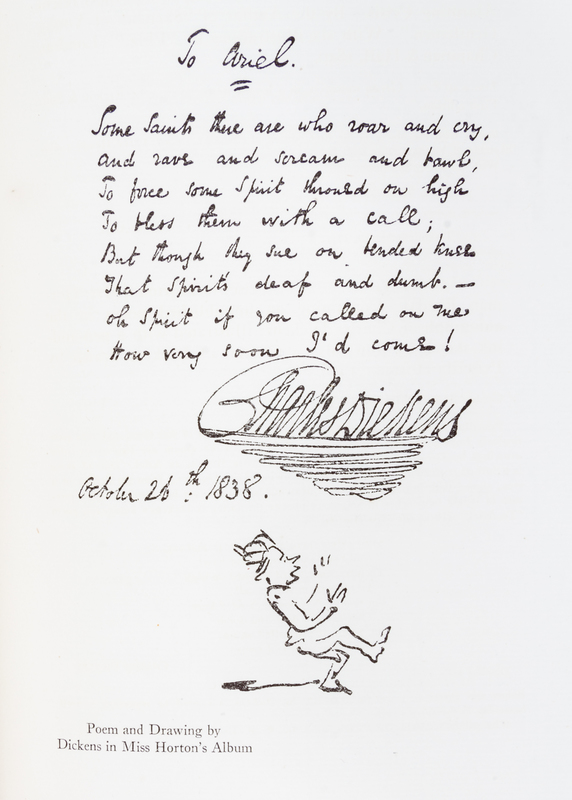 To Ariel.
Some Saints there are who roar and cry,
and rave and scream and bawl,
To force some Spirit throned on high
To bless them with a call;
But though they sue on bended knee
That Spirit's deaf and dumb. —
oh Spirit if you called on me
How very soon I'd come!
Charles Dickens
October 26th 1838.
Poem and Drawing by
Dickens in Miss Horton's Album